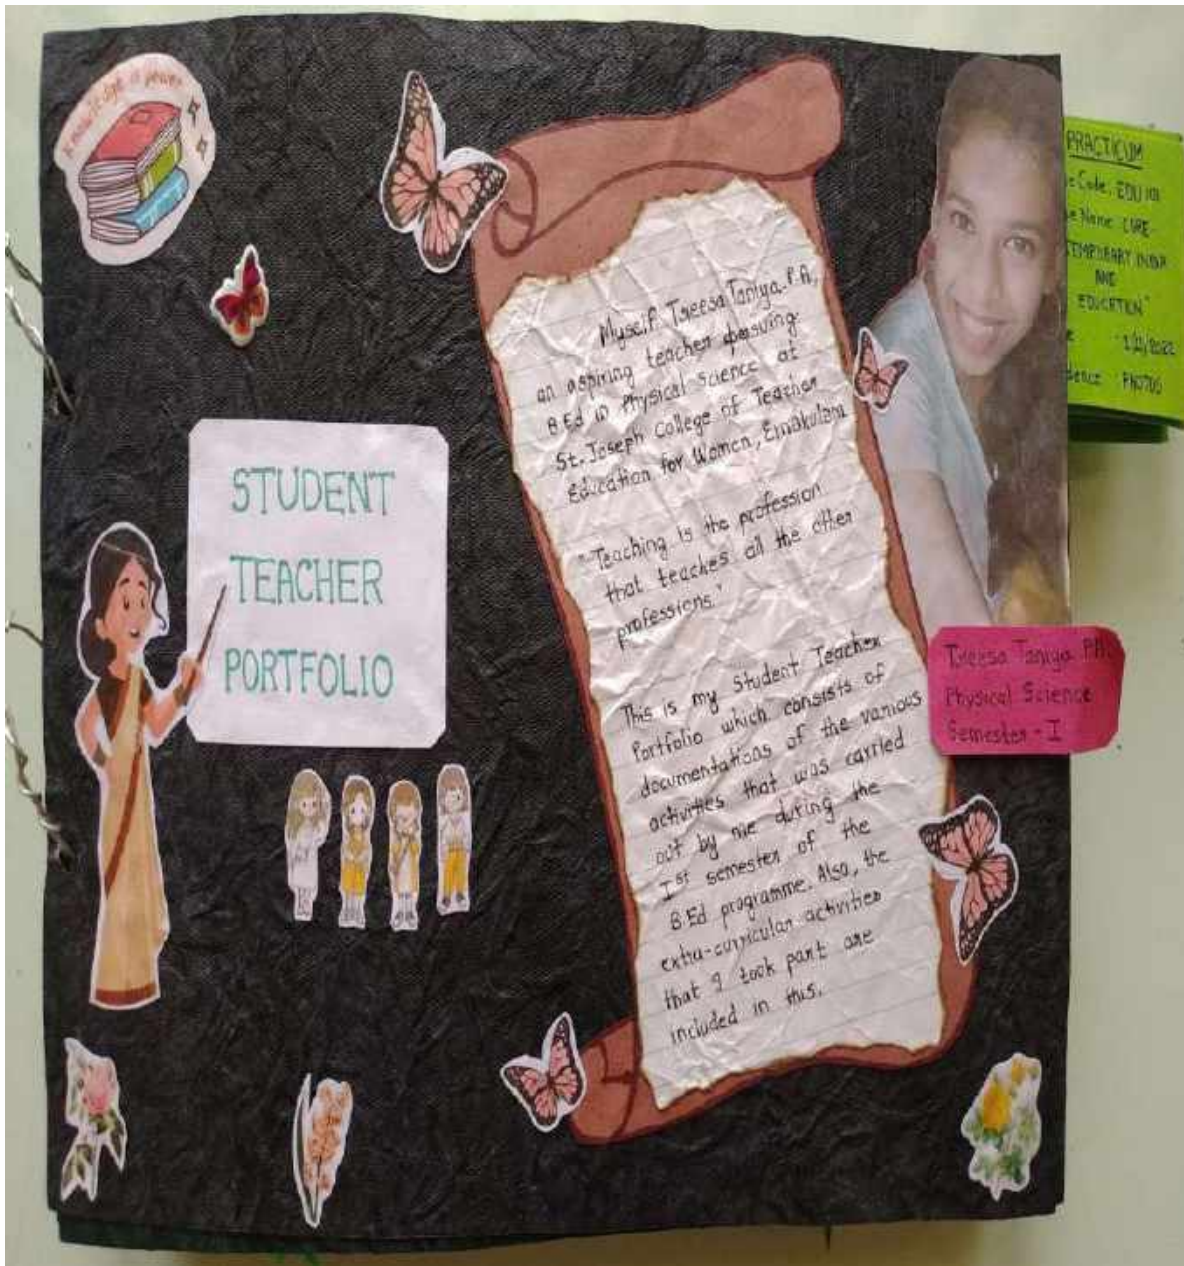 Knowledge is power
STUDENT
TEACHER
PORTFOLIO
Myself Treesa Taniya P.A,
an aspiring teacher persuing
B.Ed in Physical Science at
St. Joseph College of Teacher
Education for Women, Ernakulam
"Teaching is the profession
that teaches all the other
professions."
This is my Student Teacher
Portfolio which consists of
documentations of the various
activities that was carried
out by me during the
Ist semester of the
B.Ed programme. Also, the
extra-curricular activities
that I took part are
included in this.
PRACTICUM
Code: EDU 101
Name CORE-
AND
EDUCATION"
Treesa Taniya P.A.
Physical Science
Semester - I